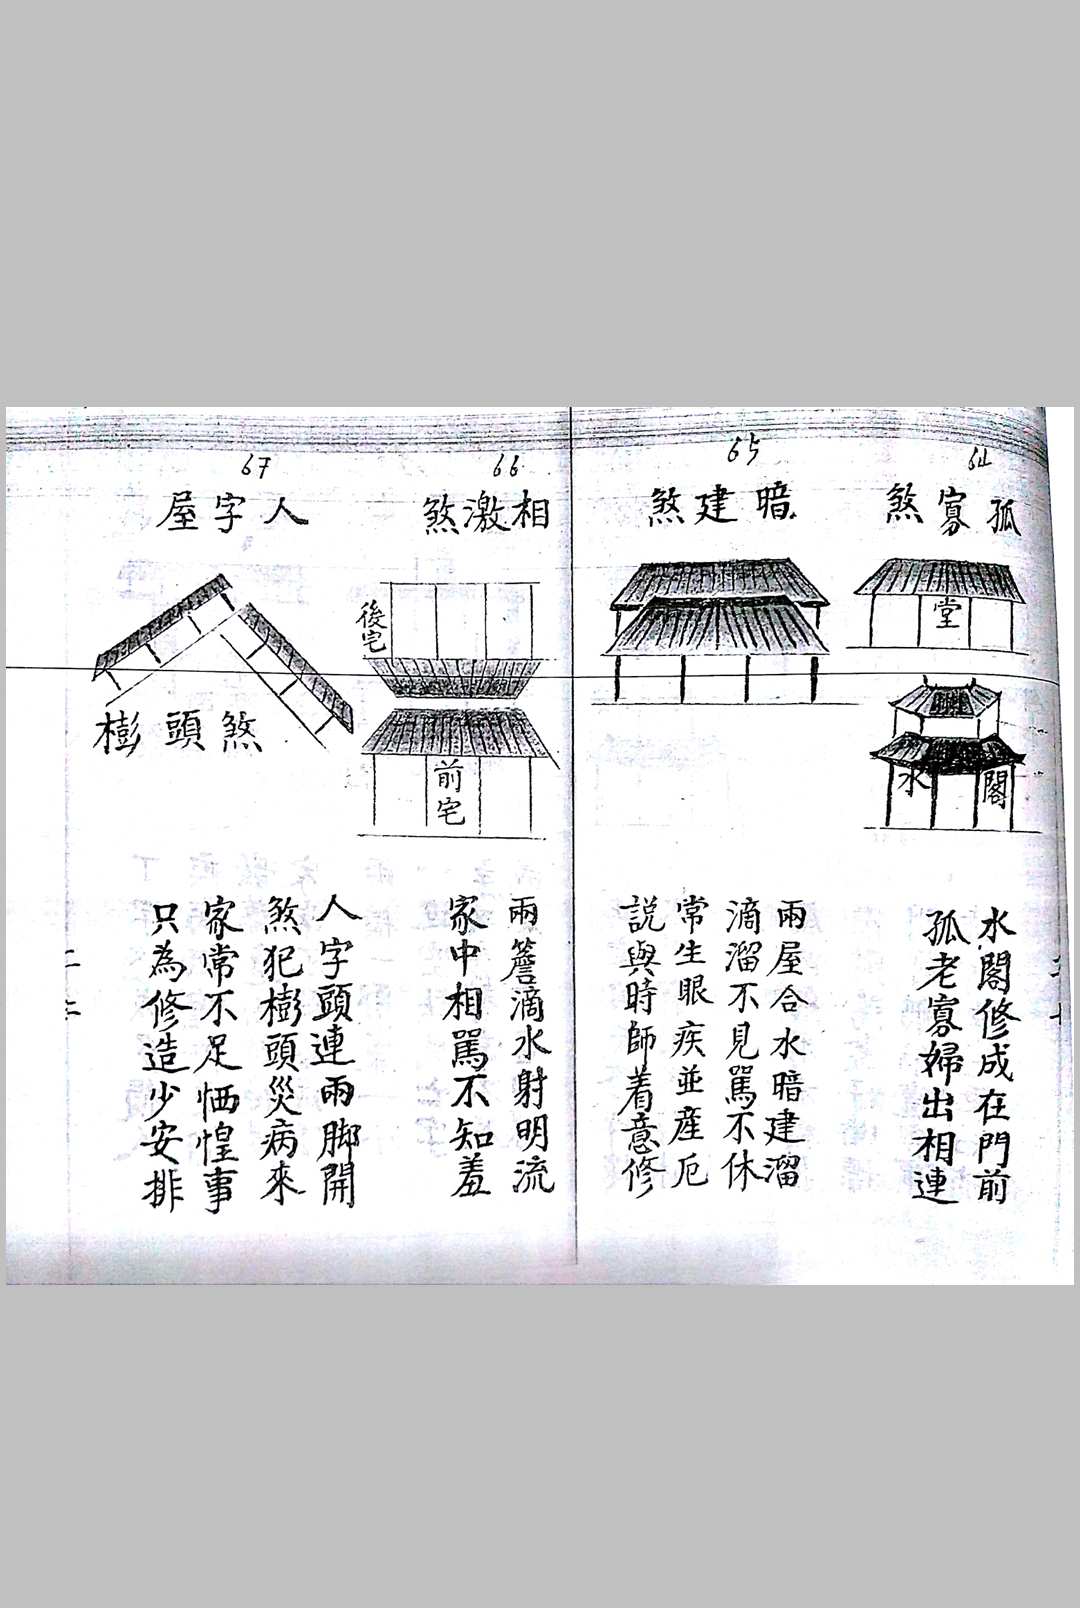 64
孤寡煞
堂
水閣
水閣修成在門前
孤老寡婦出相連
65
暗建煞
兩屋合水暗建溜
滴溜不見罵不休
常生眼疾並産厄
説與時師着意修
66
相激煞
後宅
前宅
兩簷滴水射明流
家中相罵不知羞
67
人字屋
煞頭澎
人字頭連兩脚開
煞犯澎頭災病來
家常不足恓惶事
只為修造少安排